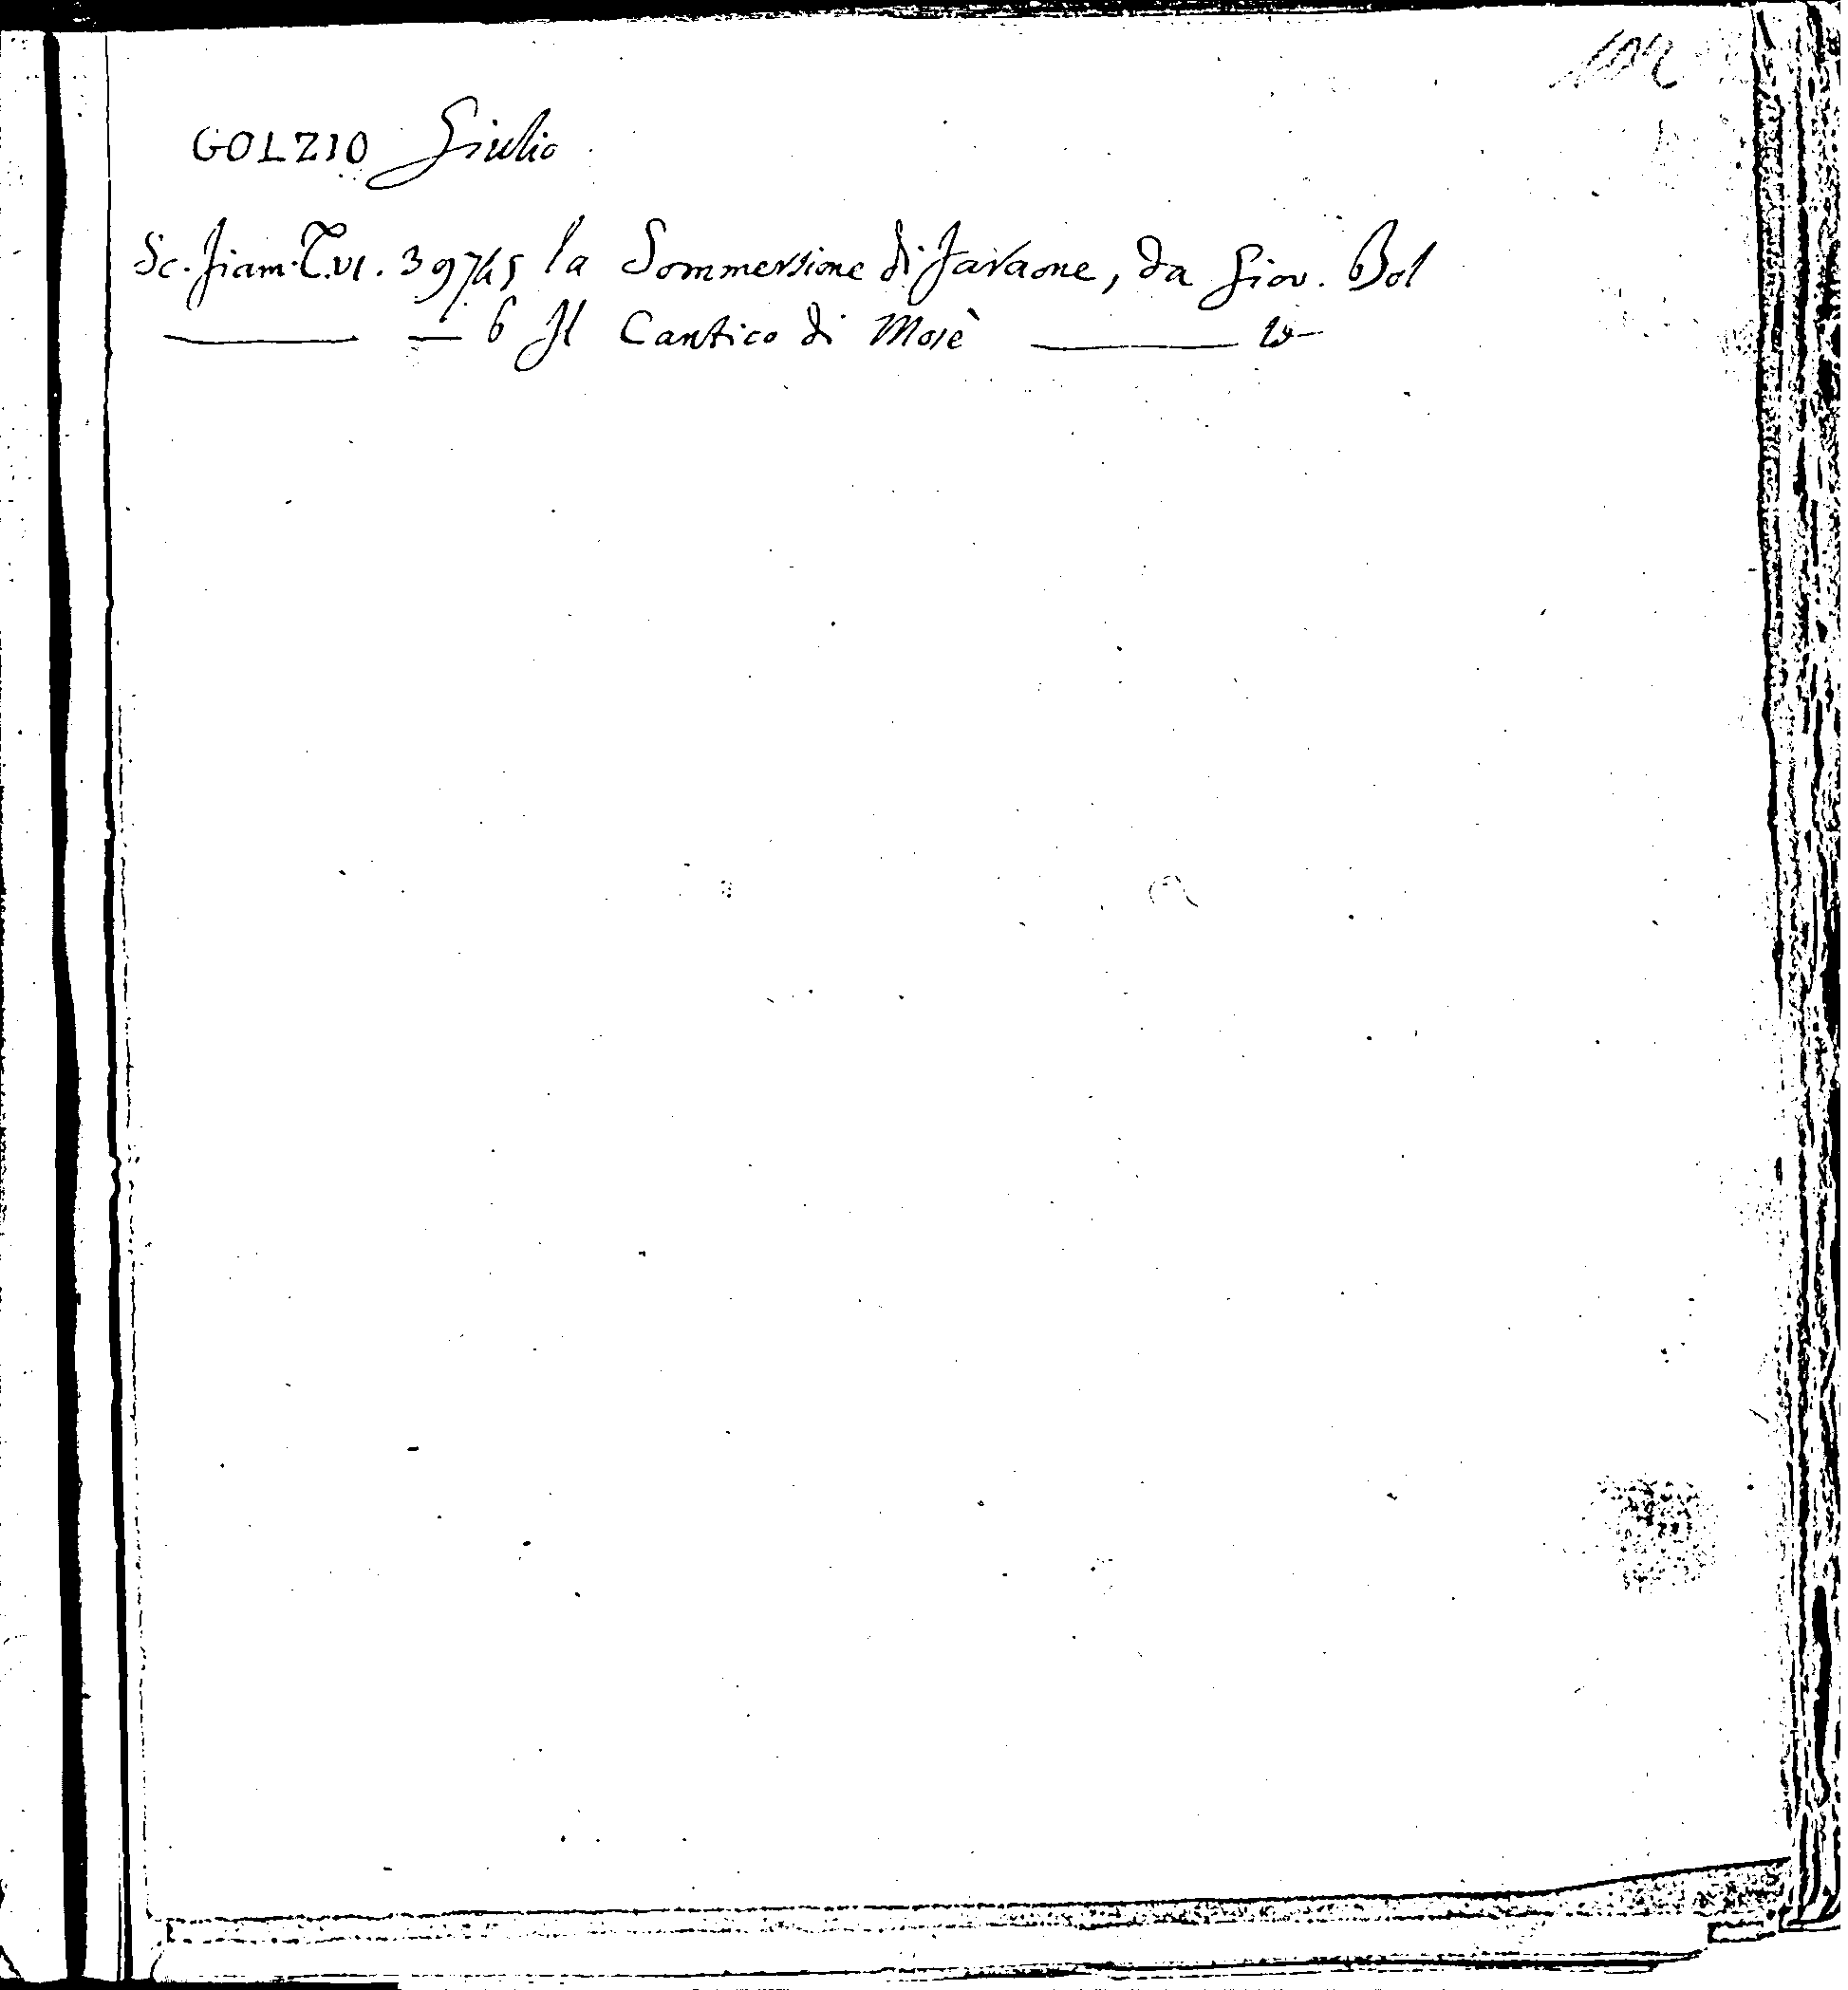 102
GOLZIO Giulio
Sc. Fiam. T. VI. 39745 la Sommersione di Faraone, da Giov. Bol
——— — 6 Il Cantico di Mosè ———